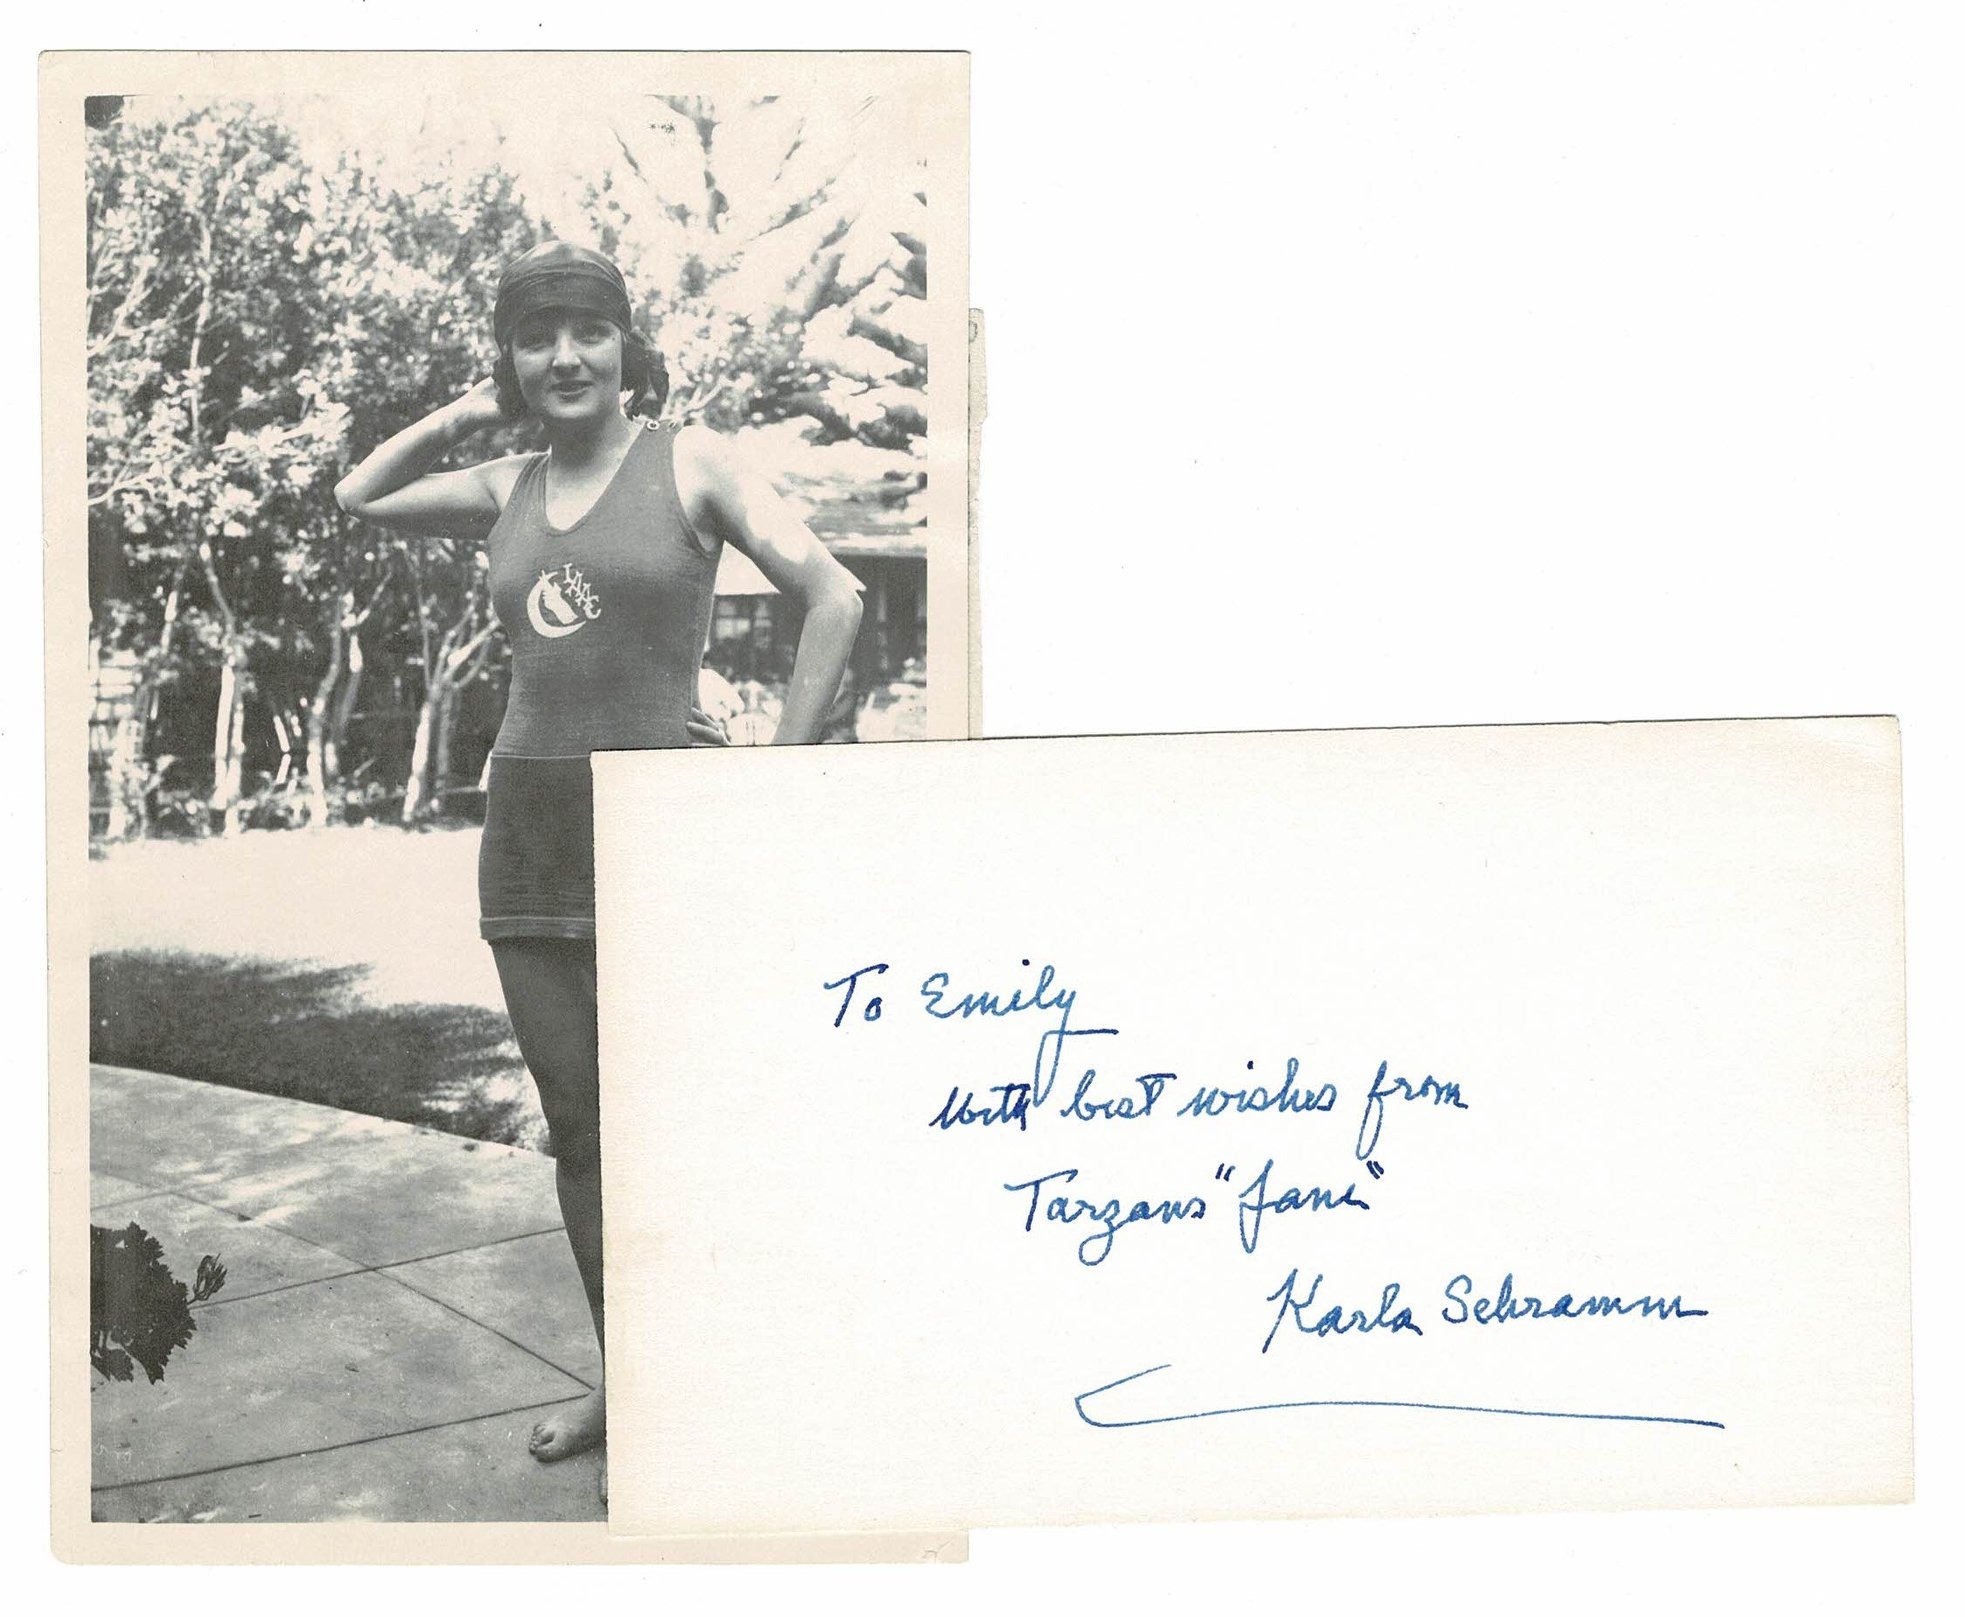 LAAC
To Emily
With best wishes from
Tarzans "Jane"
Karla Schramm